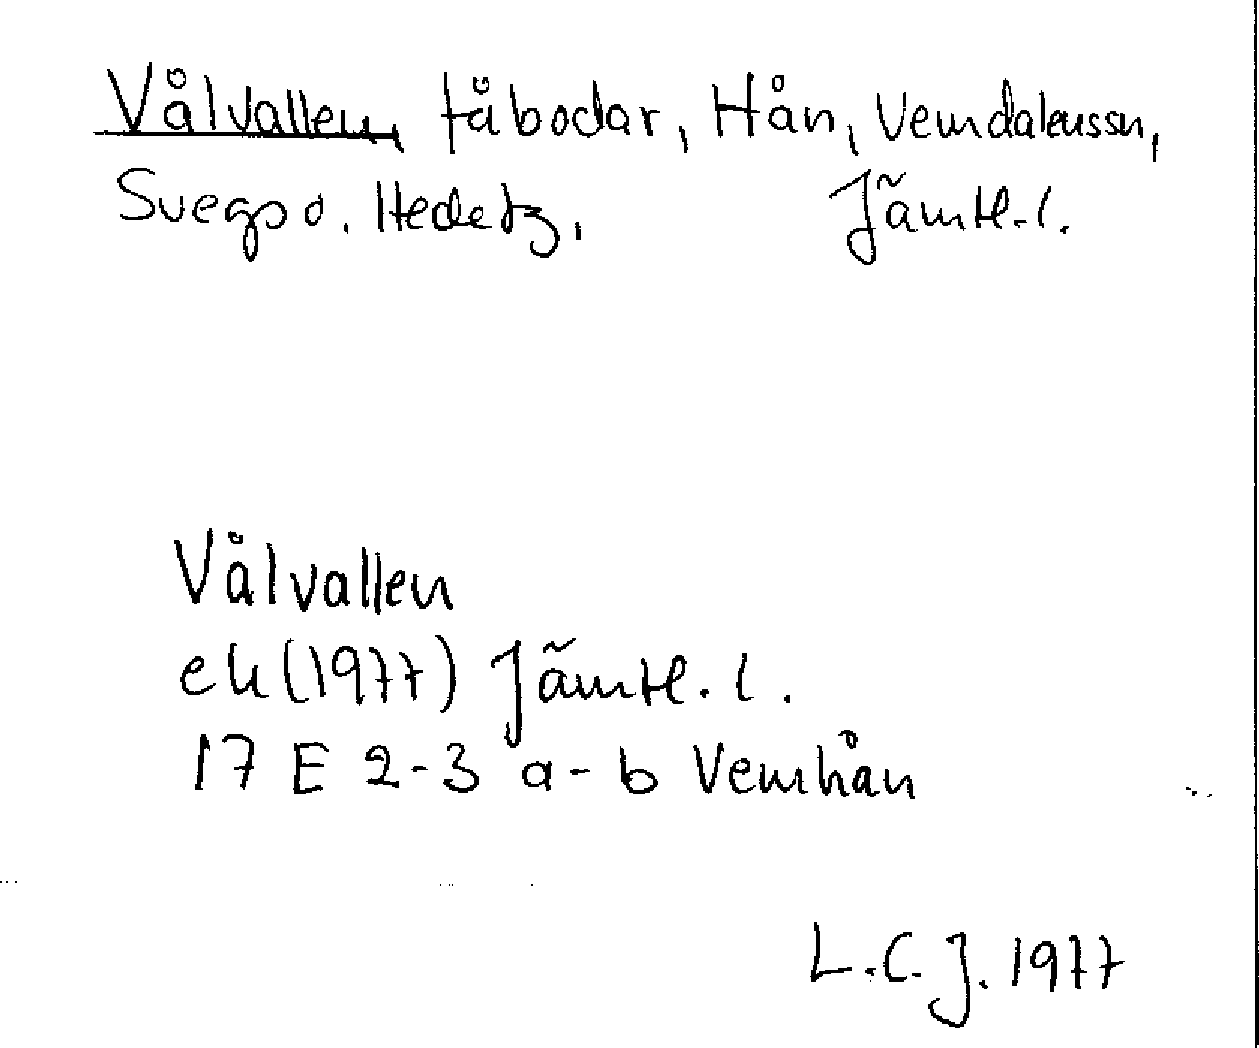 Vålvallen, fäbodar, Hån, Vemdalenssn,
Svegs o. Hedetg, Jämtl.l.
Vålvallen
ek (1977) Jämtl. l.
17 E 2-3 a-b Vemhån
L.C.J. 1977